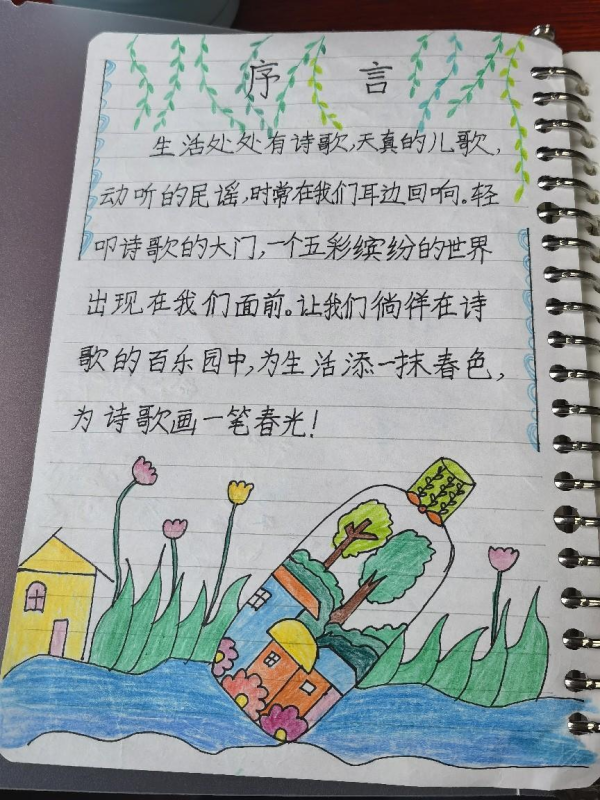 序言
生活处处有诗歌,天真的儿歌,
动听的民谣,时常在我们耳边回响。轻
叩诗歌的大门,一个五彩缤纷的世界
出现在我们面前。让我们徜徉在诗
歌的百乐园中,为生活添一抹春色,
为诗歌画一笔春光!